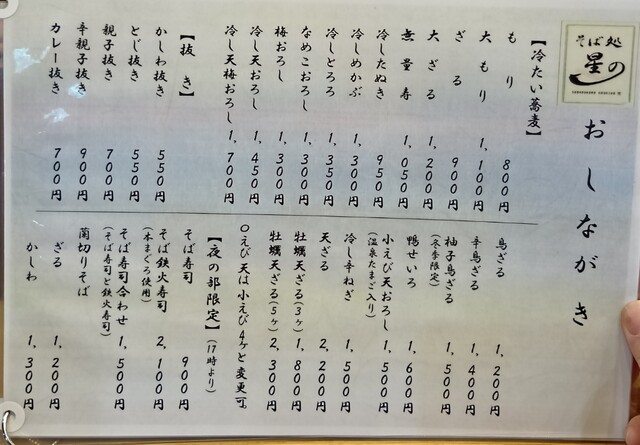 そば処
星の
おしながき
【冷たい蕎麦】
もり 800円
大もり 1,100円
ざる 900円
大ざる 1,200円
無量寿 1,050円
冷したぬき 950円
冷しめかぶ 1,300円
冷しとろろ 1,350円
なめこおろし 1,300円
梅おろし 1,300円
冷し天おろし 1,450円
冷し天梅おろし 1,700円
【抜き】
かしわ抜き 550円
とじ抜き 550円
親子抜き 700円
辛親子抜き 900円
カレー抜き 700円
鳥ざる 1,200円
辛鳥ざる 1,400円
柚子鳥ざる 1,500円
(冬季限定)
鴨せいろ 1,600円
小えび天おろし 1,500円
(温泉たまご入り)
冷し辛ねぎ 1,500円
天ざる 2,200円
牡蠣天ざる(3ヶ) 1,800円
牡蠣天ざる(5ヶ) 2,300円
〇えび天は小えび4ヶと変更可。
【夜の部限定】(17時より)
そば寿司 900円
そば鉄火寿司 2,100円
(本まぐろ使用)
そば寿司合わせ 1,500円
(そば寿司と鉄火寿司)
蘭切りそば
ざる 1,200円
かしわ 1,300円